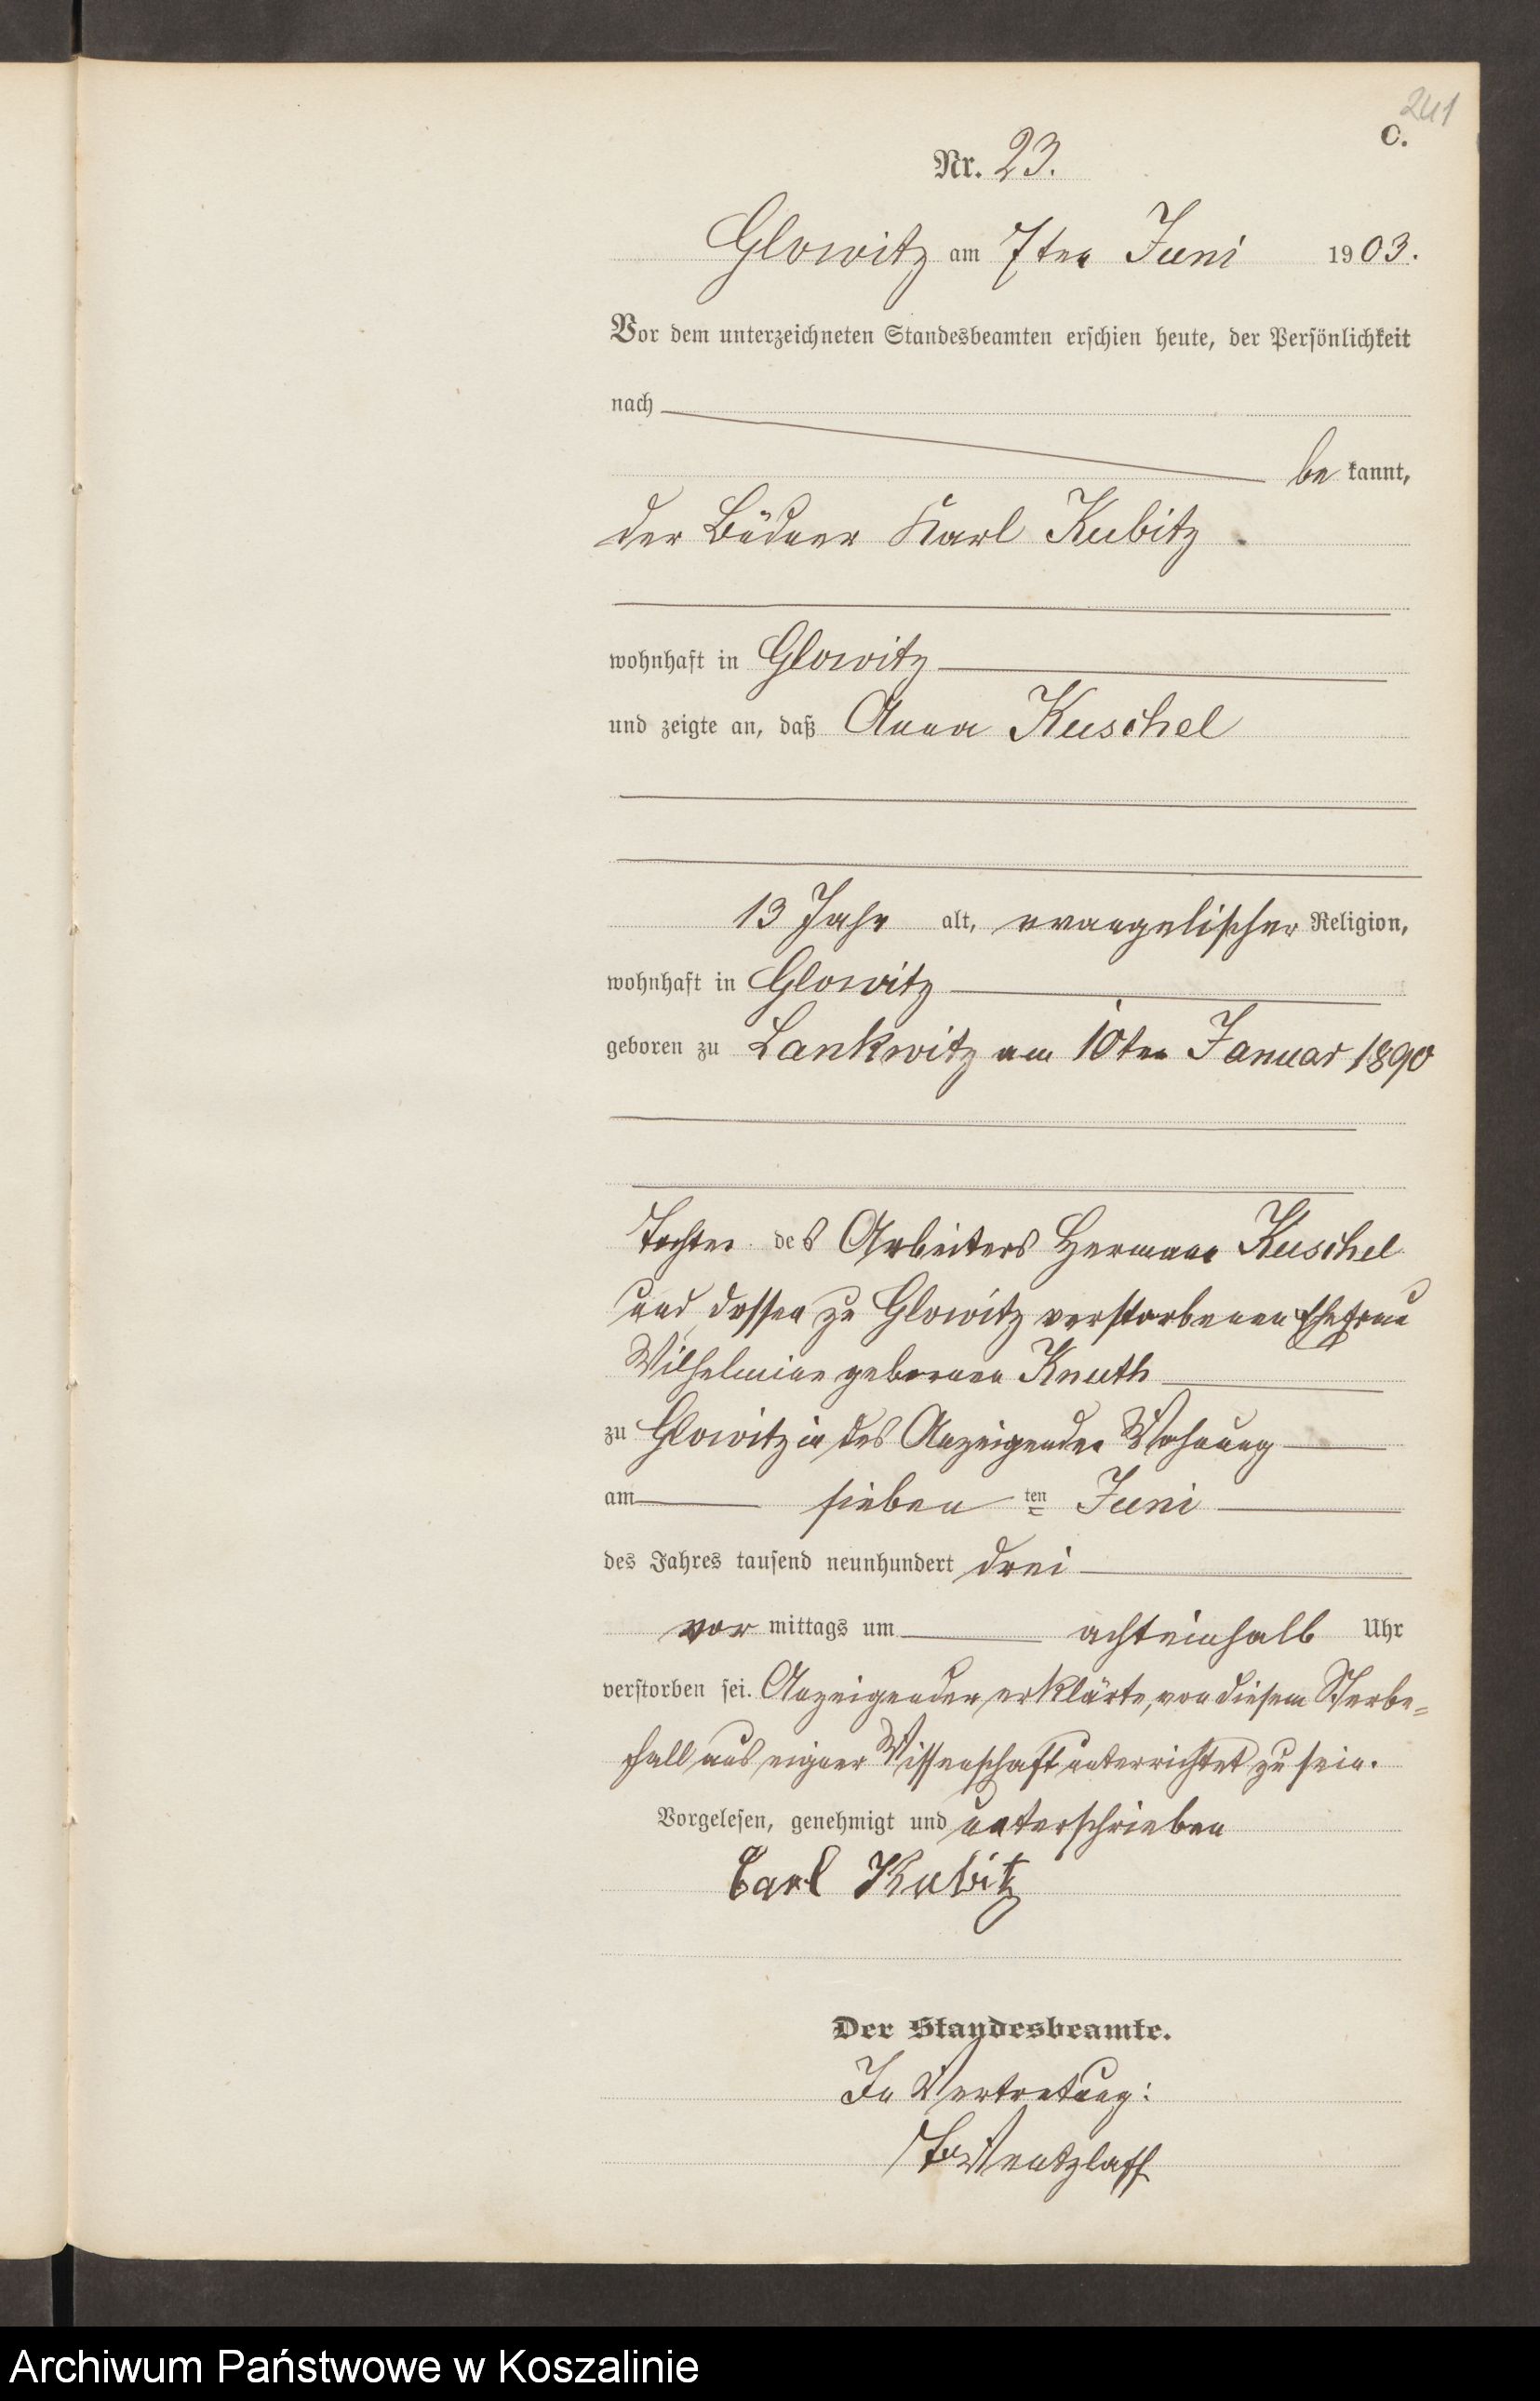 241
C.
Nr. 23.
Glowitz am 7ten Juni 1903.
Vor dem unterzeichneten Standesbeamten erschien heute, der Persönlichkeit
nach
be kannt,
der Büdner Karl Kubitz
wohnhaft in Glowitz
und zeigte an, daß Anna Kuschel
13 Jahr alt, evangelischer Religion,
wohnhaft in Glowitz
geboren zu Lankwitz am 10ten Januar 1890
Tochter des Arbeiters Hermann Kuschel
und dessen zu Glowitz verstorbenen Ehefrau
Wilhelmine gebornen Knuth
zu Glowitz in des Anzeigenden Wohnung
am sieben ten Juni
des Jahres tausend neunhundert drei
vor mittags um achteinhalb Uhr
verstorben sei. Anzeigender erklärte, von diesem Sterbe=
fall aus eigner Wissenschaft unterrichtet zu sein.
Vorgelesen, genehmigt und unterschrieben
Carl Kubitz
Der Standesbeamte.
In Vertretung:
Wentzlaff
Archiwum Państwowe w Koszalinie